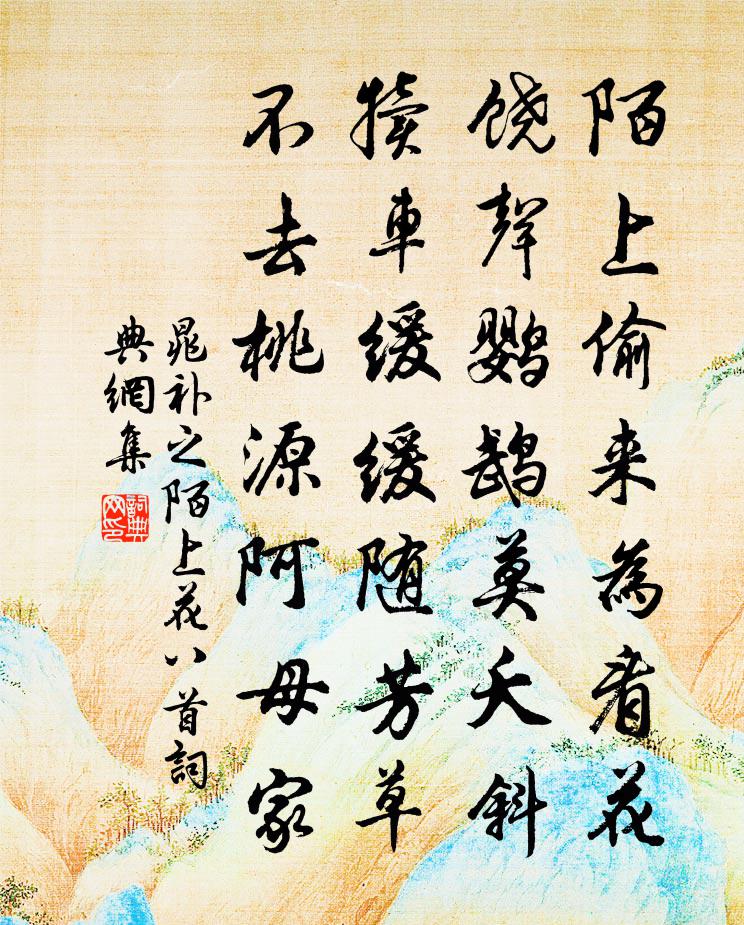 陌上偷来為看花
饶聲鹦鹉莫夭斜
犢車缓缓随芳草
不去桃源阿母家
晁补之陌上花八首詞
典網集
詞典
网印